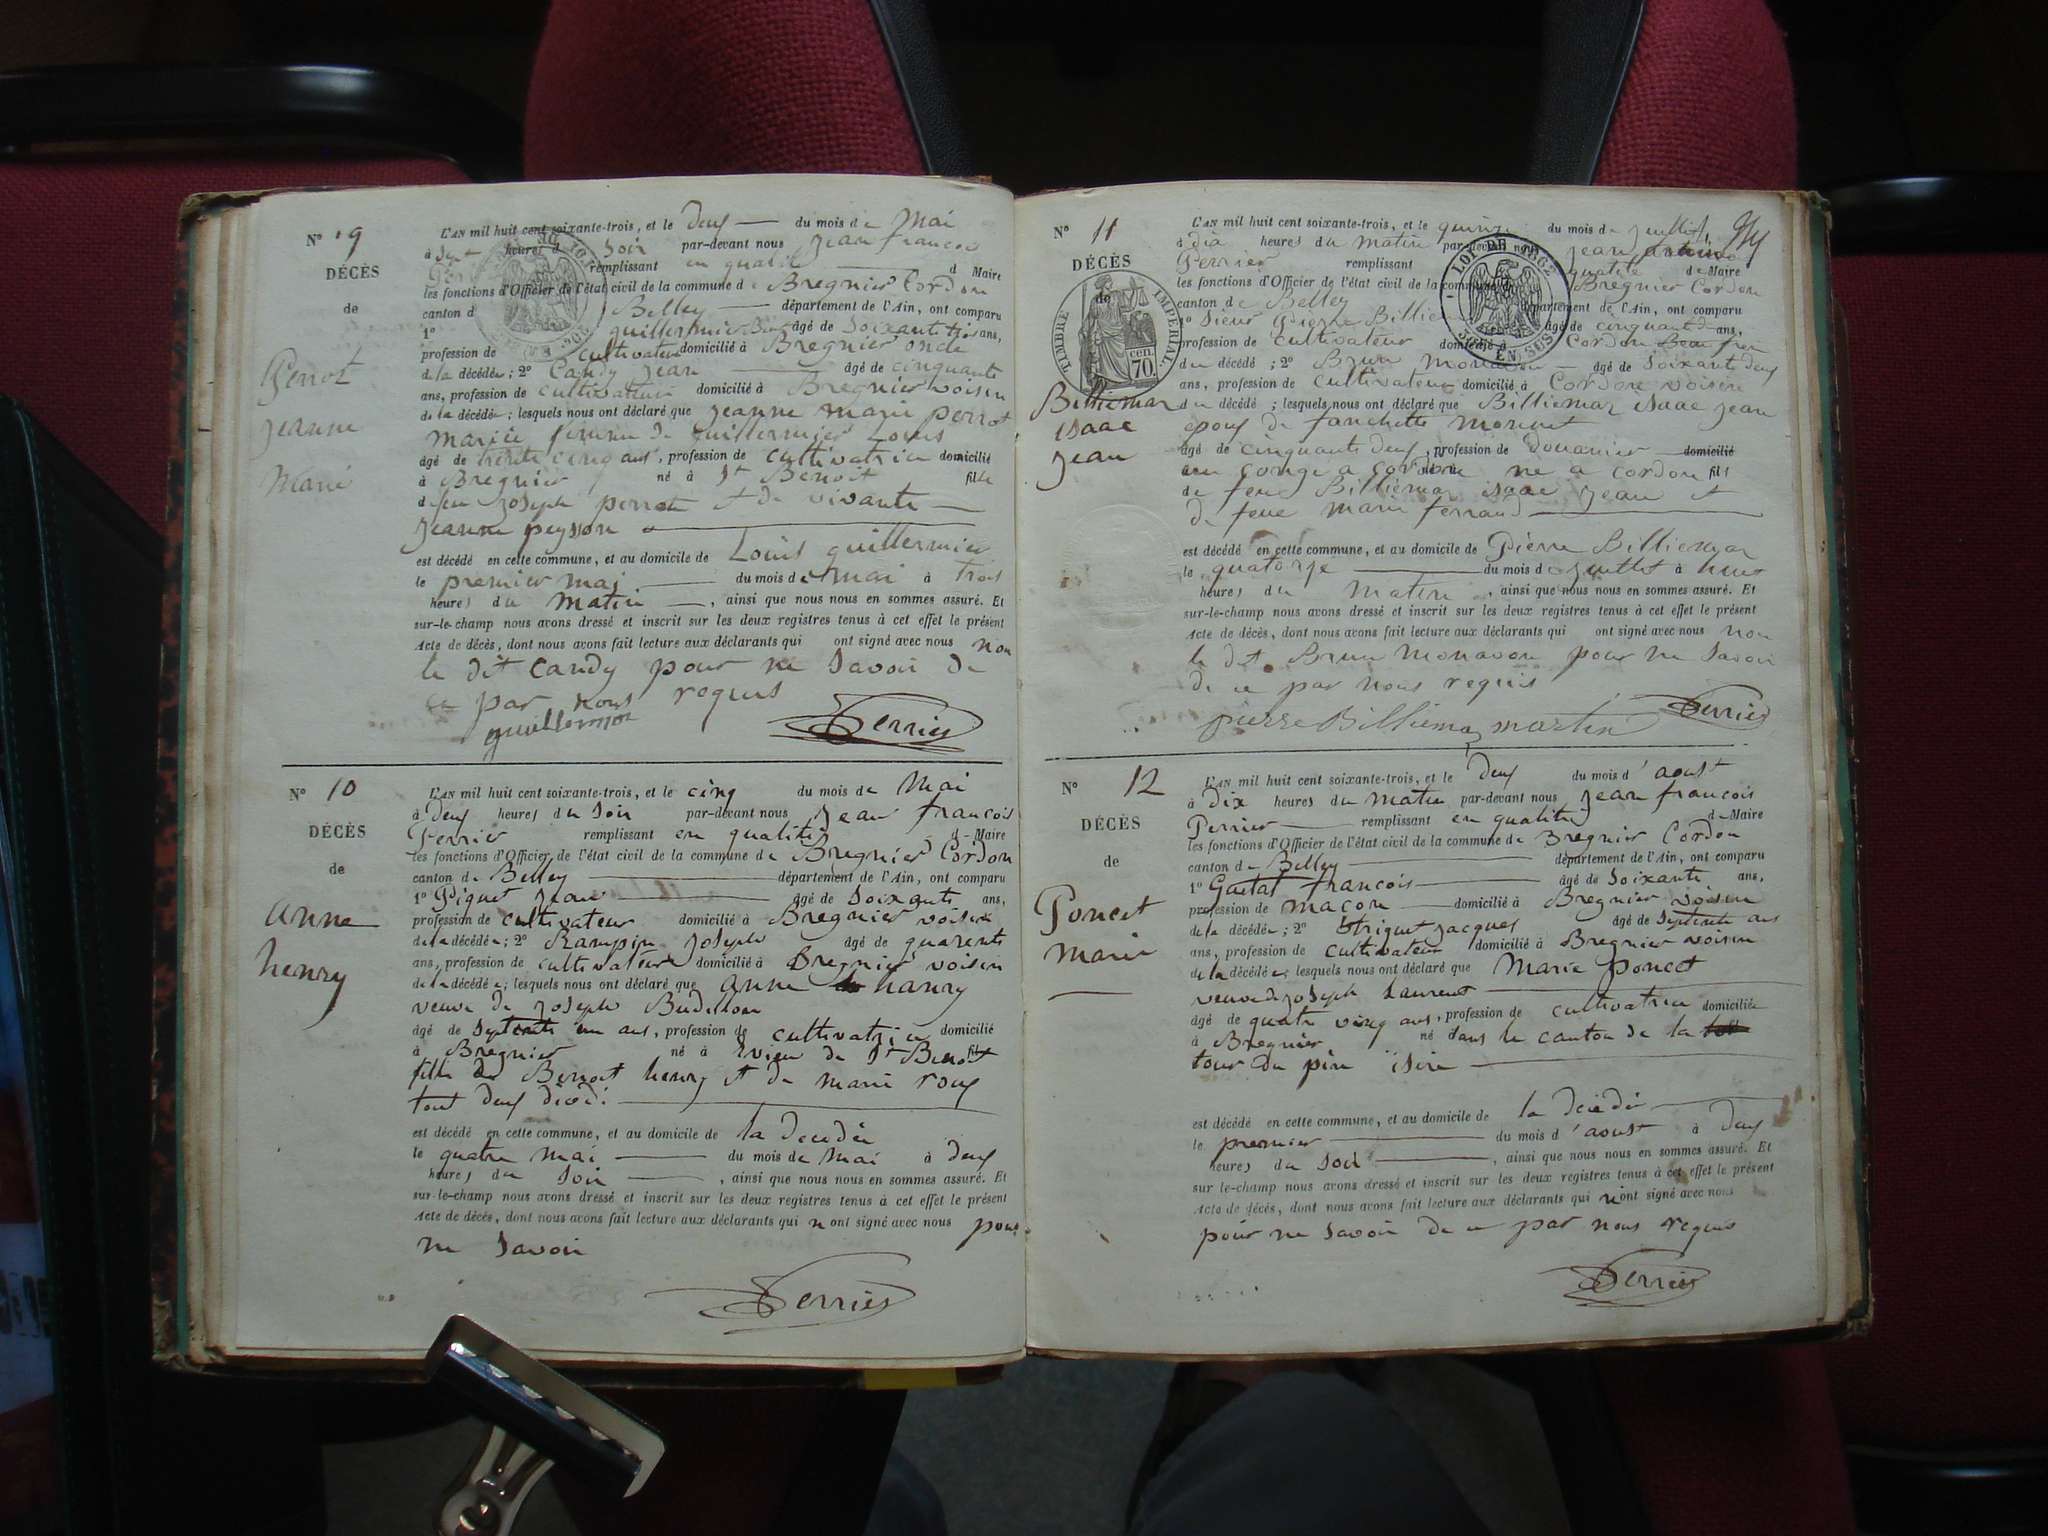 N° 9
DÉCÈS
de
Perrot
Jeanne
Marie
L'AN mil huit cent soixante-trois, et le deux du mois de Mai
à sept heures du soir par-devant nous Jean francois
remplissant en qualité de Maire
les fonctions d'Officier de l'état civil de la commune de Bregnier Cordon
canton de Belley département de l'Ain, ont comparu
1° guillermier âgé de soixante trois ans,
profession de cultivateur domicilié à Bregnier oncle
de la décédée; 2° Candy jean âgé de cinquante
ans, profession de cultivateur domicilié à Bregnier voisin
de la décédée; lesquels nous ont déclaré que jeanne marie perrot
mariée femme de guillermier Louis
âgé de trente cinq ans, profession de cultivatrice domicilié
à Bregnier né à St Benoit fille
de feu joseph perrot et de vivante
jeanne peysson
est décédé en cette commune, et au domicile de Louis guillermier
le premier mai du mois de mai à trois
heures du matin, ainsi que nous nous en sommes assuré. Et
sur-le-champ nous avons dressé et inscrit sur les deux registres tenus à cet effet le présent
Acte de décès, dont nous avons fait lecture aux déclarants qui ont signé avec nous non
le dit candy pour ne savoir de
ce par nous requis
guillermier Perrier
N° 10
DÉCÈS
de
anne
henry
L'AN mil huit cent soixante-trois, et le cinq du mois de Mai
à deux heures du soir par-devant nous jean francois
Perrier remplissant en qualité de Maire
les fonctions d'Officier de l'état civil de la commune de Bregnier Cordon
canton de Belley département de l'Ain, ont comparu
1° Piquet jean âgé de soixante ans,
profession de cultivateur domicilié à Bregnier voisin
de la décédée; 2° Rampin joseph âgé de quarente
ans, profession de cultivateur domicilié à Bregnier voisin
de la décédée; lesquels nous ont déclaré que anne hanry
veuve de joseph Budillon
âgé de septente un ans, profession de cultivatrice domicilié
à Bregnier né à Evieu de St Benoit
fille de Benoit henry et de marie roux
tout deux décédé
est décédé en cette commune, et au domicile de la décédée
le quatre mai du mois de mai à deux
heures du soir, ainsi que nous nous en sommes assuré. Et
sur-le-champ nous avons dressé et inscrit sur les deux registres tenus à cet effet le présent
Acte de décès, dont nous avons fait lecture aux déclarants qui n ont signé avec nous pour
ne savoir
Perrier
N° 11
DÉCÈS
de
TIMBRE IMPERIAL
70 cen.
Billiemaz
isaac
jean
L'AN mil huit cent soixante-trois, et le quinze du mois de juillet
à dix heures du matin par-devant nous jean
Perrier remplissant qualité de Maire
LOI DE 1862
EN SUS
les fonctions d'Officier de l'état civil de la commune Bregnier Cordon
canton de Belley département de l'Ain, ont comparu
1° sieur Pierre Billiemaz âgé de cinquante ans,
profession de cultivateur domicilié à Cordon Beau frere
du décédé; 2° Brun monavon âgé de soixante deux
ans, profession de cultivateur domicilié à Cordon voisin
du décédé; lesquels nous ont déclaré que Billiemaz isaac jean
epoux de fanchette morenet
âgé de cinquante deux, profession de douanier domicilié
en conge a cordon né à cordon fils
de feu Billiemaz isaac jean et
de feue marie ferraud
est décédé en cette commune, et au domicile de Pierre Billiemaz
le quatorze du mois de juillet à huit
heures du matin, ainsi que nous nous en sommes assuré. Et
sur-le-champ nous avons dressé et inscrit sur les deux registres tenus à cet effet le présent
Acte de décès, dont nous avons fait lecture aux déclarants qui ont signé avec nous non
le dit Brun monavon pour ne savoir
de ce par nous requis
pierre Billiemaz martin Perrier
N° 12
DÉCÈS
de
Poncet
marie
L'AN mil huit cent soixante-trois, et le deux du mois d'aoust
à dix heures du matin par-devant nous jean francois
Perrier remplissant en qualité de Maire
les fonctions d'Officier de l'état civil de la commune de Bregnier Cordon
canton de Belley département de l'Ain, ont comparu
1° Guetat francois âgé de soixante ans,
profession de macon domicilié à Bregnier voisin
de la décédée; 2° Triquet jacques âgé de septente ans
ans, profession de cultivateur domicilié à Bregnier voisin
de la décédée; lesquels nous ont déclaré que Marie poncet
veuve de joseph Laurent
âgé de quatre vingt ans, profession de cultivatrice domiciliée
à Bregnier né dans le canton de la
tour du pin isère
est décédé en cette commune, et au domicile de la décédée
le premier du mois d'aoust à deux
heures du soir, ainsi que nous nous en sommes assuré. Et
sur le-champ nous avons dressé et inscrit sur les deux registres tenus à cet effet le présent
Acte de décès, dont nous avons fait lecture aux déclarants qui n'ont signé avec nous
pour ne savoir de ce par nous requis
Perrier